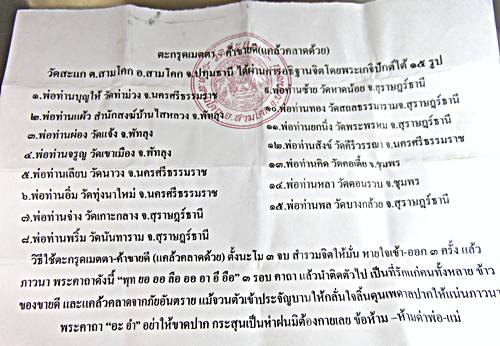 ตะกรุดเมตตา - ค้าขายดี(แคล้วคลาดด้วย)
วัดสะแก ต.สามโคก อ.สามโคก จ.ปทุมธานี ได้ผ่านการอธิฐานจิตโดยพระเกจิปักต์ใต้ ๑๕ รูป
๑.พ่อท่านบุญให้ วัดท่าม่วง จ.นครศรีธรรมราช
๒.พ่อท่านแคล้ว สำนักสงฆ์บ้านไสหลวง จ.พัทลุง
๓.พ่อท่านผ่อง วัดแจ้ง จ.พัทลุง
๔.พ่อท่านจรูญ วัดเขาเมือง จ.พัทลุง
๕.พ่อท่านเลียบ วัดนาวง จ.นครศรีธรรมราช
๖.พ่อท่านอิ่ม วัดทุ่งนาใหม่ จ.นครศรีธรรมราช
๗.พ่อท่านจ่าง วัดเกาะกลาง จ.สุราษฎร์ธานี
๘.พ่อท่านพริ้ม วัดนันทาราม จ.สุราษฎร์ธานี
๙.พ่อท่านซ้าย วัดหาดน้อย จ.สุราษฎร์ธานี
๑๐.พ่อท่านทอง วัดสถลธรรมาราม จ.สุราษฎร์ธานี
๑๑.พ่อท่านยกนิ่ง วัดพระพรหม จ.สุราษฎร์ธานี
๑๒.พ่อท่านสังข์ วัดศิริวรรณา จ.นครศรีธรรมราช
๑๓.พ่อท่านคิด วัดคอเตี้ย จ.ชุมพร
๑๔.พ่อท่านหลา วัดดอนรวบ จ.ชุมพร
๑๕.พ่อท่านพล วัดบางกล้วย จ.สุราษฎร์ธานี
วิธีใช้ตะกรุดเมตตา-ค้าขายดี (แคล้วคลาดด้วย) ตั้งนะโม ๓ จบ สำรวมจิตให้มั่น หายใจเข้า-ออก ๓ ครั้ง แล้ว
ภาวนา พระคาถาดังนี้ “พุท ยอ ออ ลือ ออ อา อี อือ” ๓ รอบ คาถา แล้วนำติดตัวไป เป็นที่รักแก่คนทั้งหลาย จ้าว
ของขายดี และแคล้วคลาดจากภัยอันตราย แม้จวนตัวเข้าประจัญบานให้กลั่นใจลิ้นดุนเพดาลปากให้แน่นภาวนา
พระคาถา “อะ อำ” อย่าให้ขาดปาก กระสุนเป็นห่าฝนมิต้องกายเลย ข้อห้าม –ห้ามด่าพ่อ-แม่